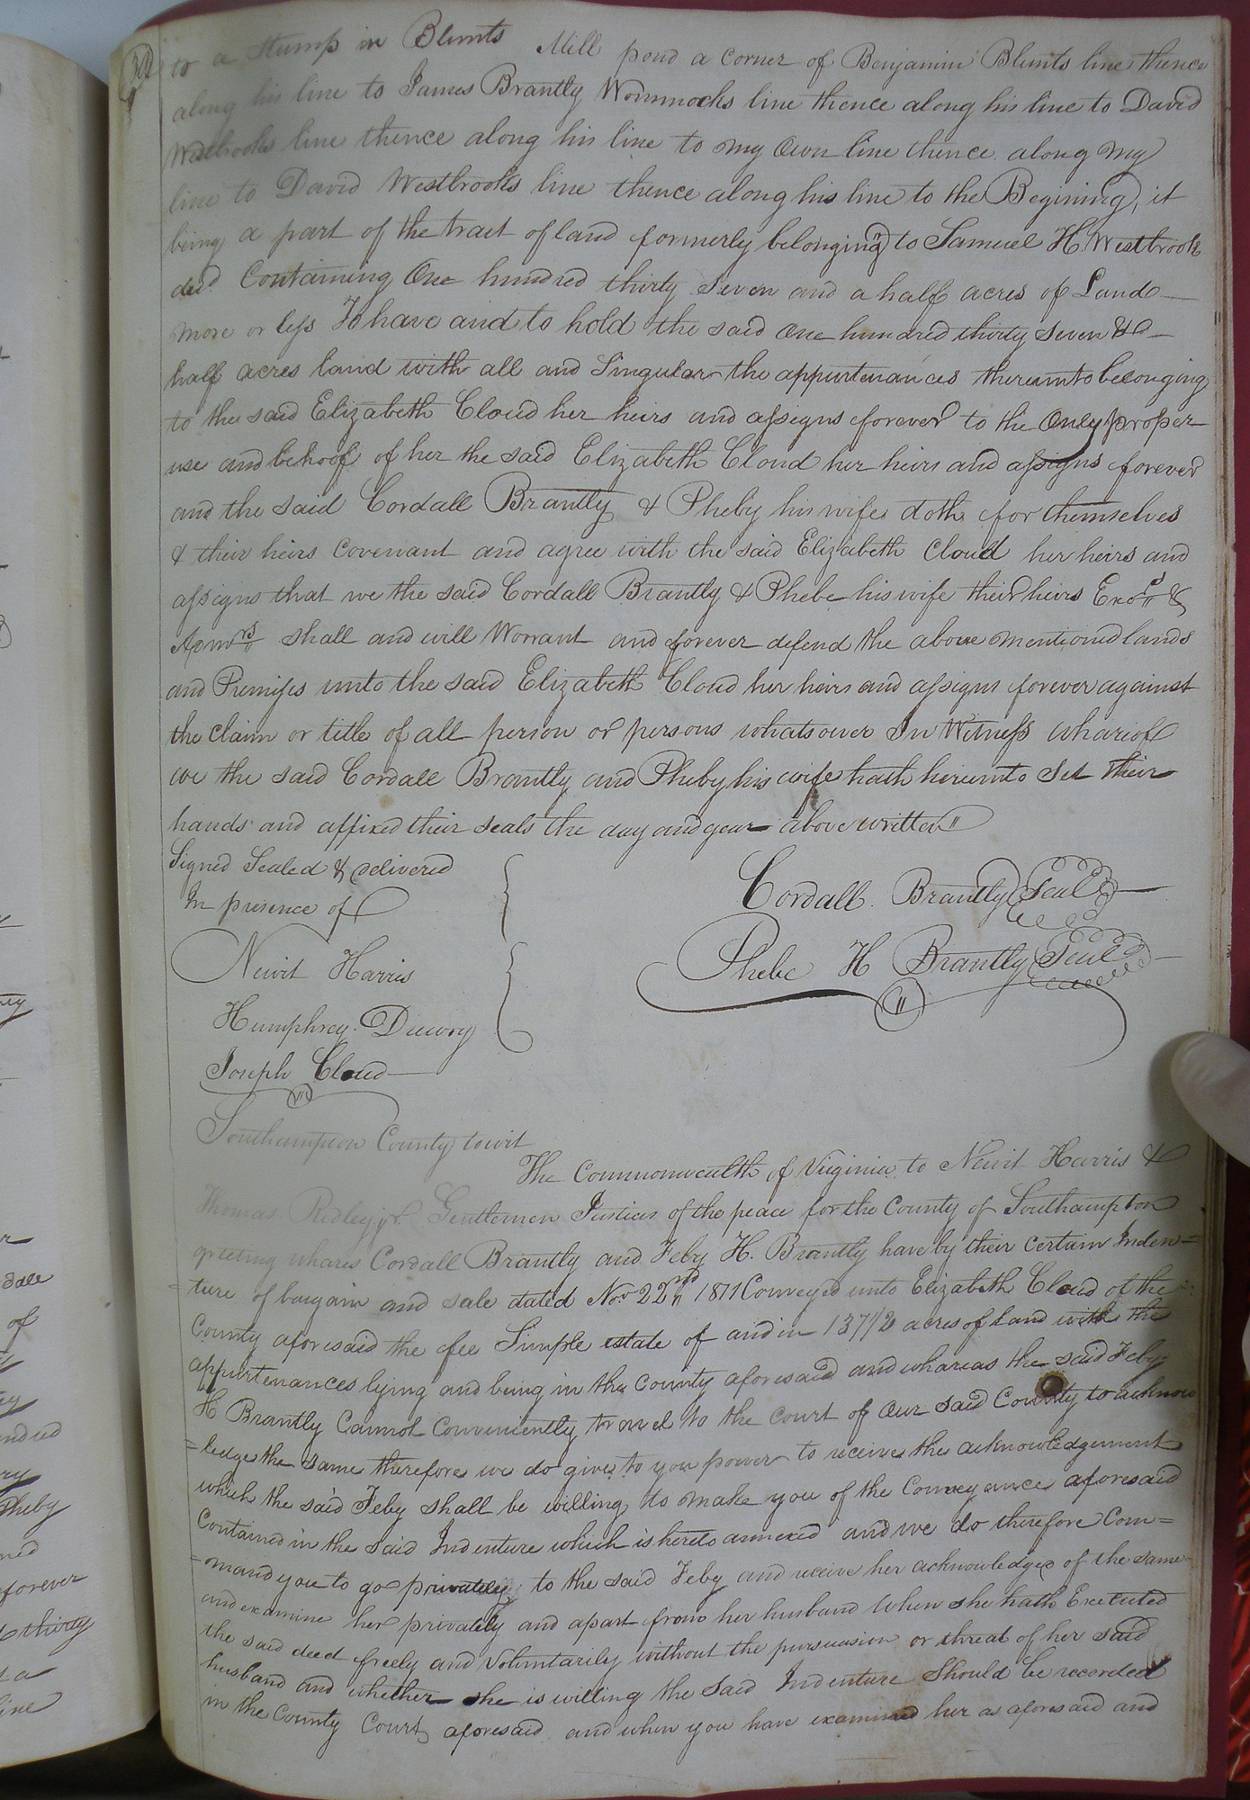 to a Stump in Blunts Mill pond a corner of Benjamin Blunts line thence
along his line to James Brantly Wommocks line thence along his line to David
Westbrooks line thence along his line to my Own line thence along my
line to David Westbrooks line thence along his line to the Begining, it
being a part of the tract of land formerly belonging to Samuel H. Westbrook
decd. Containing One hundred thirty Seven and a half acres of Land
more or less To have and to hold the said One hundred thirty Seven & a
half acres land with all and Singular the appurtenances thereunto belonging
to the said Elizabeth Cloud her heirs and assigns forever to the Only proper
use and behoof of her the said Elizabeth Cloud her heirs and assigns forever
and the said Cordall Brantly & Pheby his wife doth for themselves
& their heirs covenant and agree with the said Elizabeth Cloud her heirs and
assigns that we the said Cordall Brantly & Phebe his wife their heirs Exors &
Admrs shall and will Warrant and forever defend the above mentioned lands
and Premises unto the said Elizabeth Cloud her heirs and assigns forever against
the claim or title of all person or persons whatsoever In Witness whariof
we the said Cordall Brantly and Pheby his wife hath hereunto Set their
hands and affixed their seals the day and year above written
Signed Sealed & delivered
In presence of
Cordall Brantly Seal
Newit Harris
Phebe H Brantly Seal
Humphrey Drewry
Joseph Cloud
Southampton County towit
The Commonwealth of Virginia to Newit Harris &
Thomas Ridley jr. Gentlemen Justices of the peace for the County of Southampton
greeting whares Cordall Brantly and Feby H. Brantly have by their certain Inden=
=ture of bargain and sale dated Nov 22nd 1811 Conveyed unto Elizabeth Cloud of the
County aforesaid the fee Simple estate of and in 137 1/2 acres of Land with the
appurtenances lying and being in the County aforesaid and whareas the said Feby
H Brantly Cannot Conveniently travel to the Court of Our said County to acknow
=ledge the same therefore we do give to you power to receive the acknowledgement
which the said Feby shall be willing to make you of the Conveyance aforesaid
Contained in the said Indenture which is hereto annexed and we do therefore Com=
=mand you to go privately to the said Feby and receive her acknowledge of the same
and examine her privately and apart from her husband When she hath Executed
the said deed freely and Voluntarily without the pursuasion or threat of her said
husband and whether she is willing the Said Indenture Should be recorded
in the County Court aforesaid and when you have examined her as aforesaid and